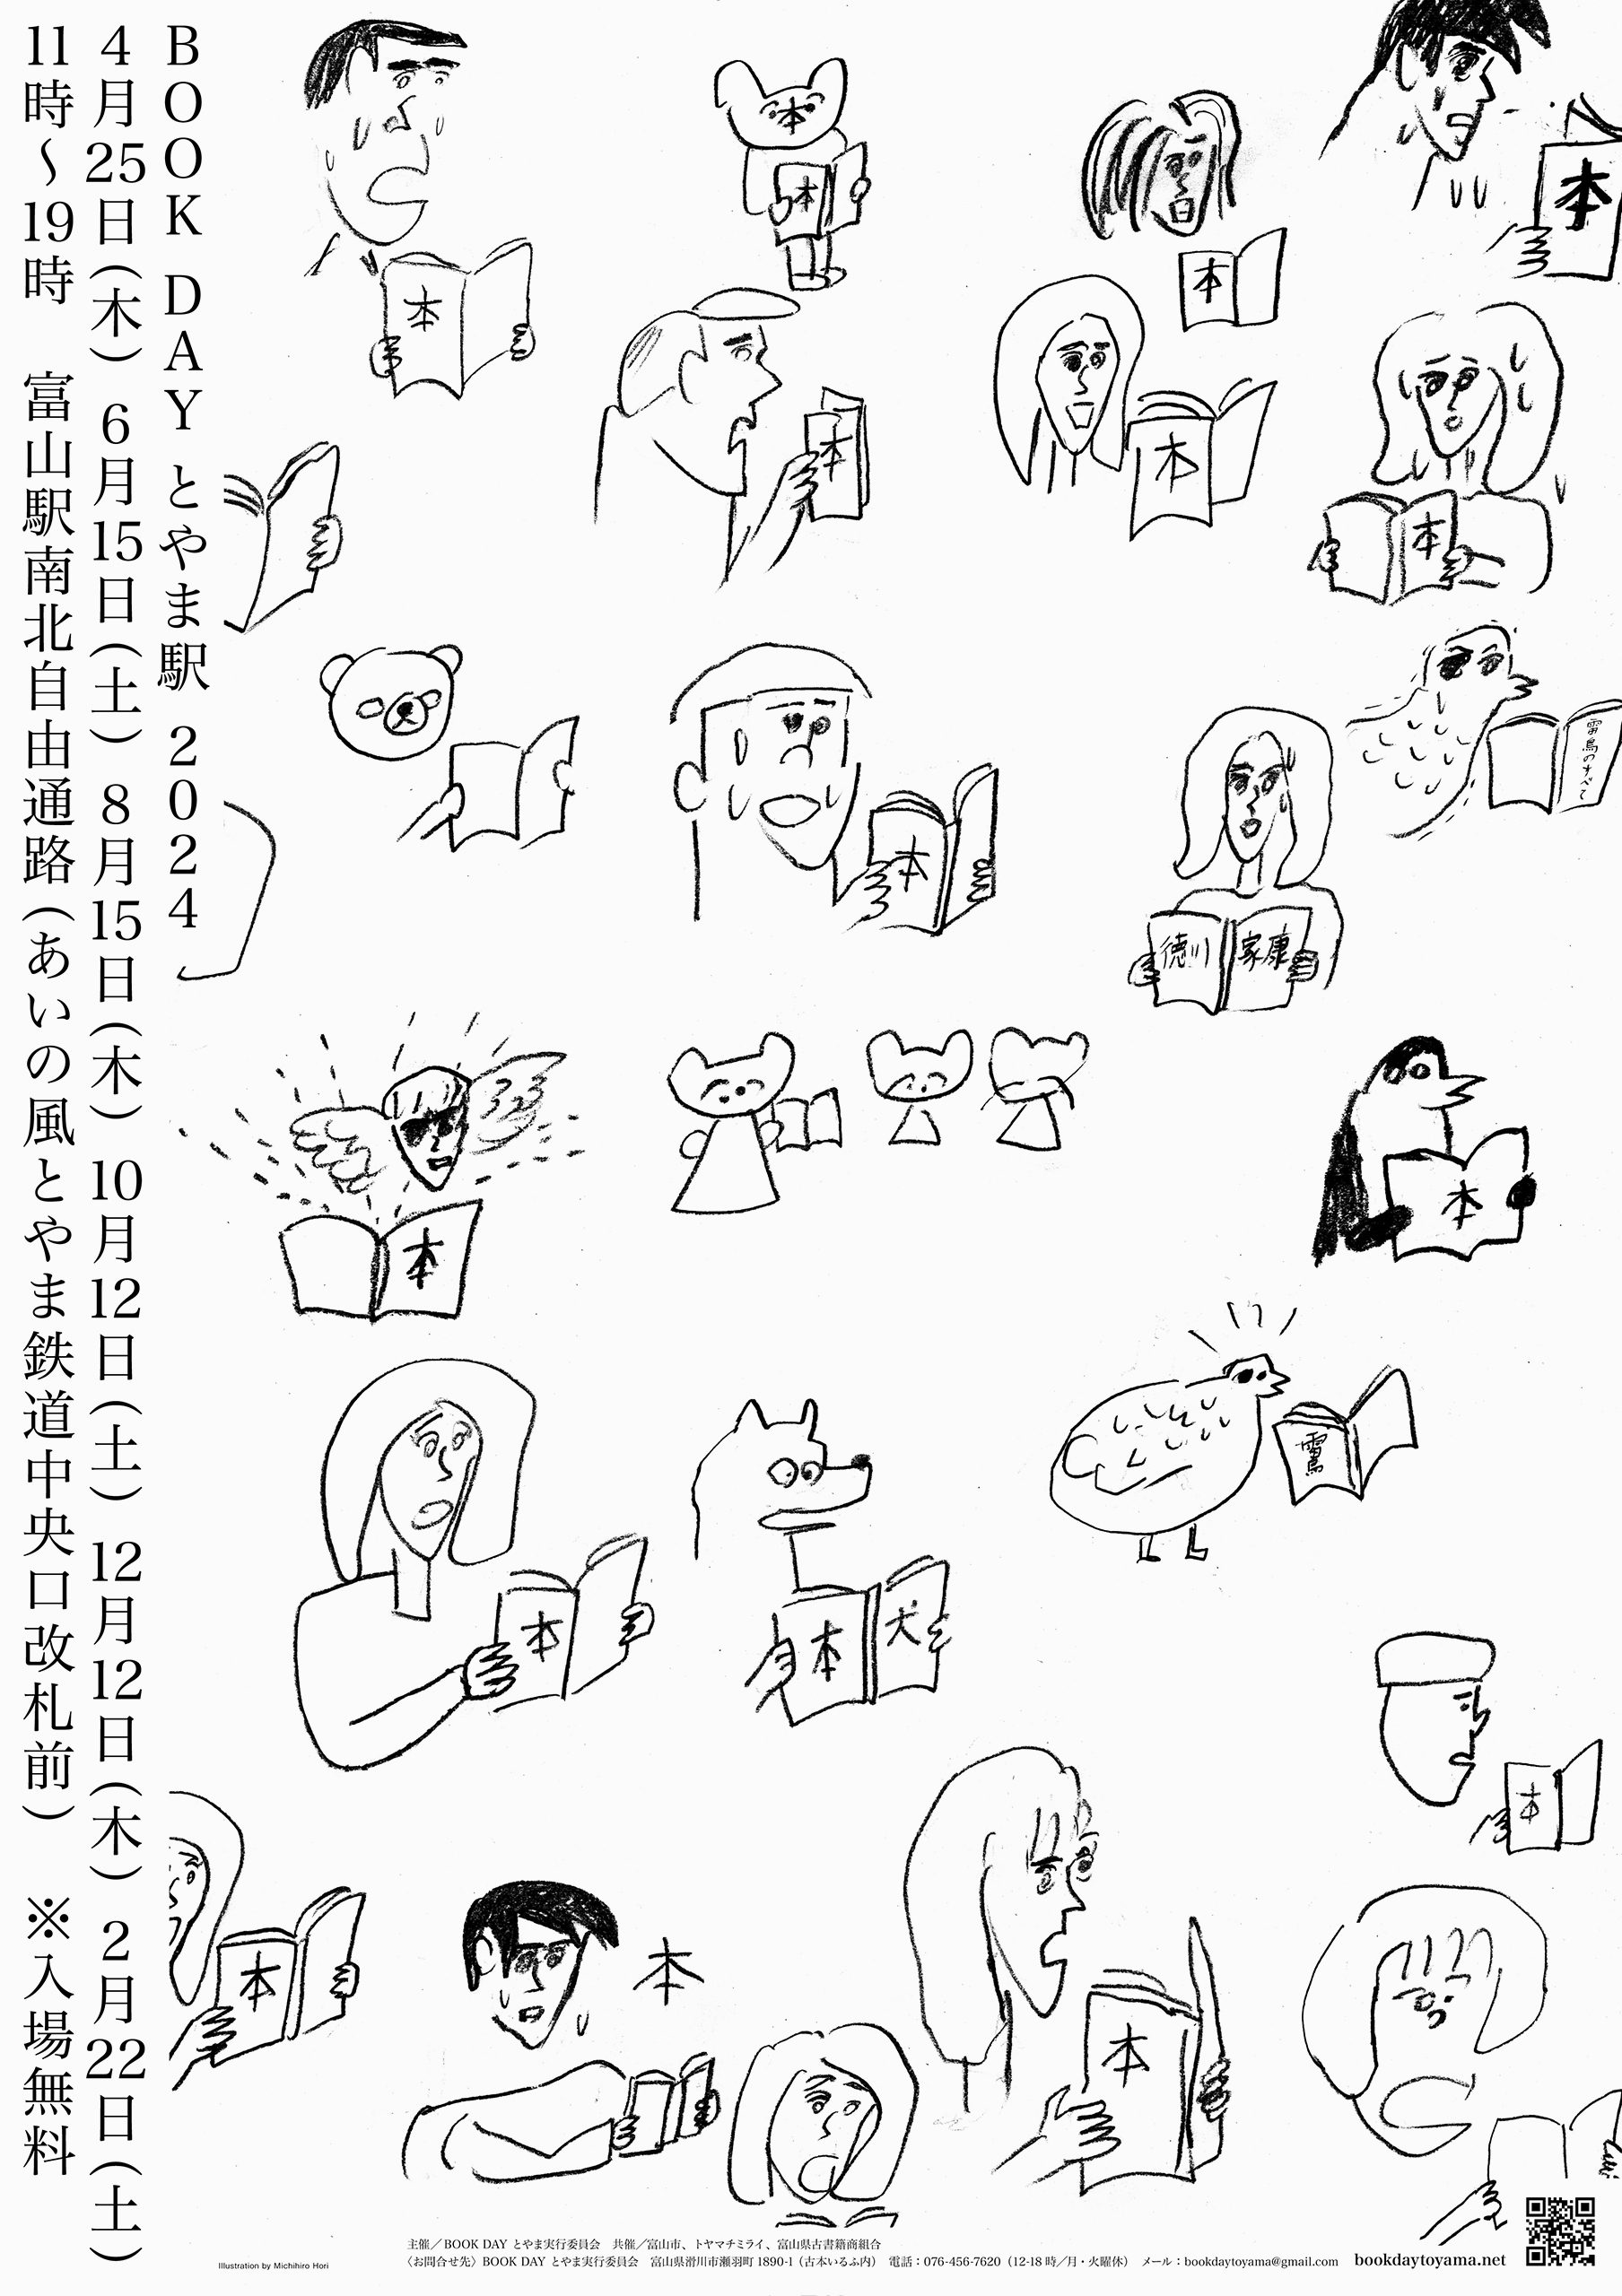 BOOK DAY とやま駅 2024
4月25日(木) 6月15日(土) 8月15日(木) 10月12日(土) 12月12日(木) 2月22日(土)
11時〜19時 富山駅南北自由通路(あいの風とやま鉄道中央口改札前) ※入場無料
本
本
本
本
本
本
本
本
本
雷鳥のすべて
徳川 家康
本
本
本
雷鳥
本
犬
本
本
本
本
主催／BOOK DAY とやま実行委員会 共催／富山市、トヤマチミライ、富山県古書籍商組合
〈お問合せ先〉BOOK DAY とやま実行委員会 富山県滑川市瀬羽町 1890-1（古本いるふ内） 電話：076-456-7620（12-18 時／月・火曜休） メール：bookdaytoyama@gmail.com bookdaytoyama.net
Illustration by Michihiro Hori